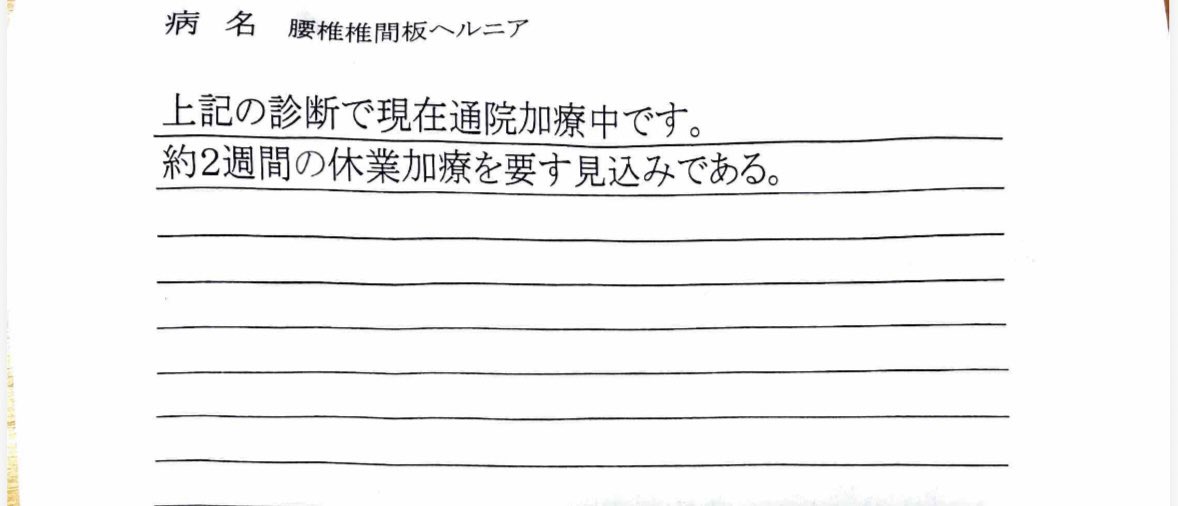 病 名 腰椎椎間板ヘルニア
上記の診断で現在通院加療中です。
約2週間の休業加療を要す見込みである。